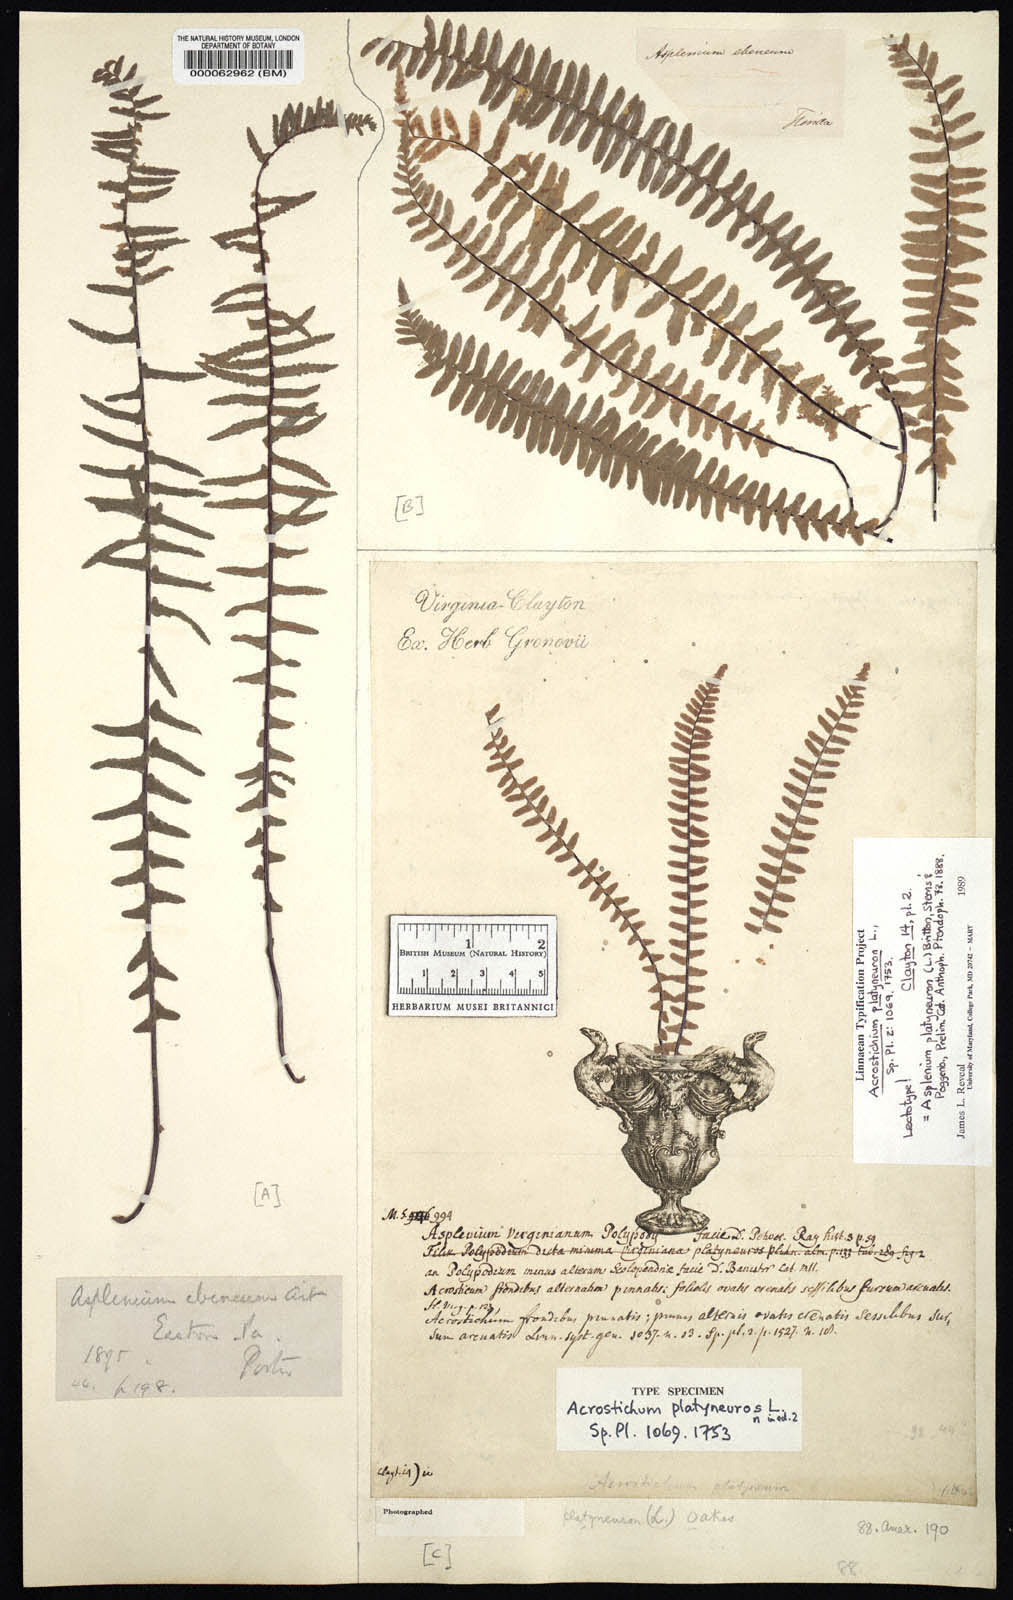 THE NATURAL HISTORY MUSEUM, LONDON
DEPARTMENT OF BOTANY
000062962 (BM)
Asplenium ebeneum
[B]
Virginia-Clayton
Ex. Herb Gronovii
1 2
BRITISH MUSEUM (NATURAL HISTORY)
1 2 3 4 5
HERBARIUM MUSEI BRITANNICI
Linnaean Typification Project
Acrostichium platyneuron L.,
Sp. Pl. 2: 1069. 1753.
Lectotype! Clayton 14, pl. 2.
= Asplenium platyneuron (L.) Britton, Sterns &
Poggenb., Prelim. Cat. Anthoph. Pteridoph. 73. 1888.
James L. Reveal 1989
University of Maryland, College Park, MD 20742 – MARY
[A]
Asplenium ebeneum Ait
Easton Pa.
1895.
Porter
p 198.
M.S. 994
Asplenium Verginianum Polypody facie D. Petver. Ray hist. 3 p. 54
Filix Polypodium dicta minima Virginiana platyneuros Plukn. alm. p. 152 tab. 289 fig 2
an Polypodium minus alterum Scolopendriæ facie D. Banister Cat. mss.
Acrosticum frondibus alternatim pennatis: foliolis ovatis crenatis sessilibus sursum arcuatis.
Fl. Virg. p. 123
Acrostichum frondibus pinnatis: pinnis alternis ovatis crenatis sessilibus sur,
sum arcuatis Linn. syst. gen. 1037. n. 13. Sp. pl. 2. p. 1527. n. 18.
TYPE SPECIMEN
Acrostichum platyneuros L.
n in ed. 2
Sp. Pl. 1069. 1753
Acrostichum platyneuron
Photographed
platyneuron (L.) Oakes
88. Amer. 190
[C]
88